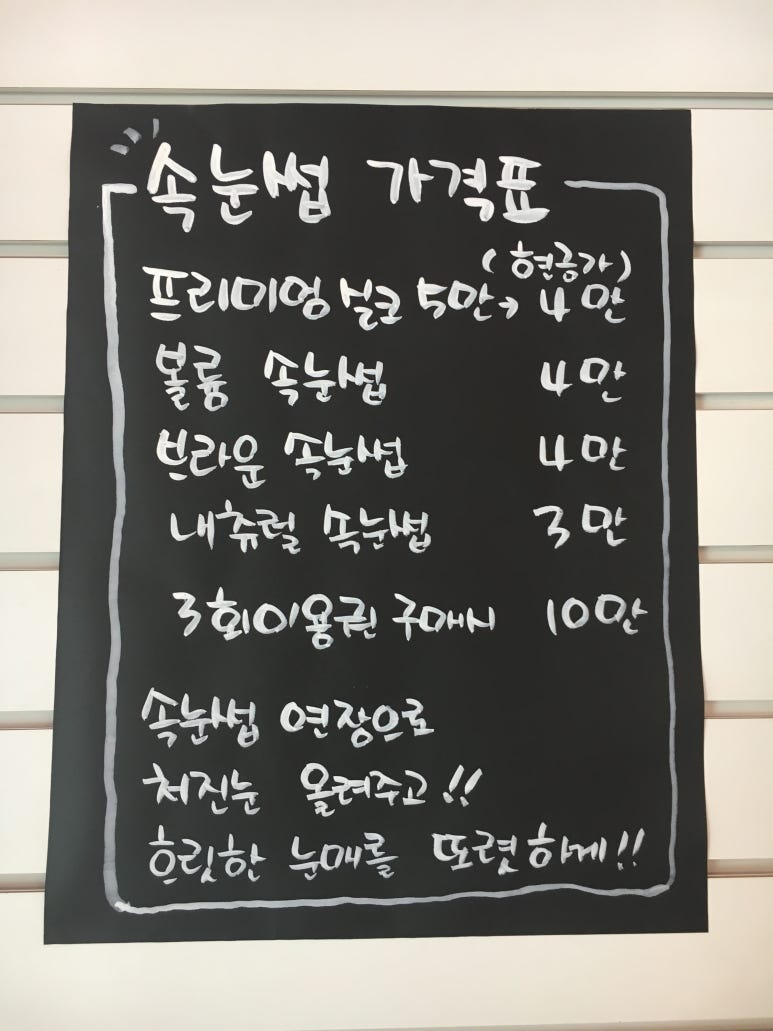 속눈썹 가격표
(현금가)
프리미엄 실크 5만→ 4만
볼륨 속눈썹 4만
브라운 속눈썹 4만
내츄럴 속눈썹 3만
3회이용권 구매시 10만
속눈썹 연장으로
처진눈 올려주고!!
흐릿한 눈매를 또렷하게!!